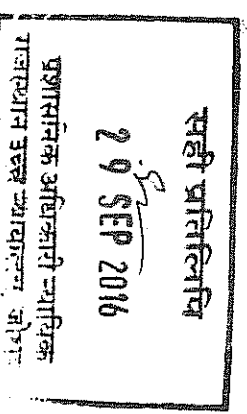 सही प्रतिलिपि
29 SEP 2016
प्रशासनिक अधिकारी न्यायिक
राजस्थान उच्च न्यायालय